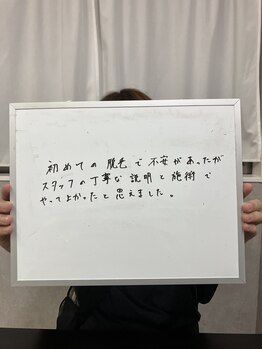 初めての脱毛で不安があったが
スタッフの丁寧な説明と施術で
やってよかったと思えました。